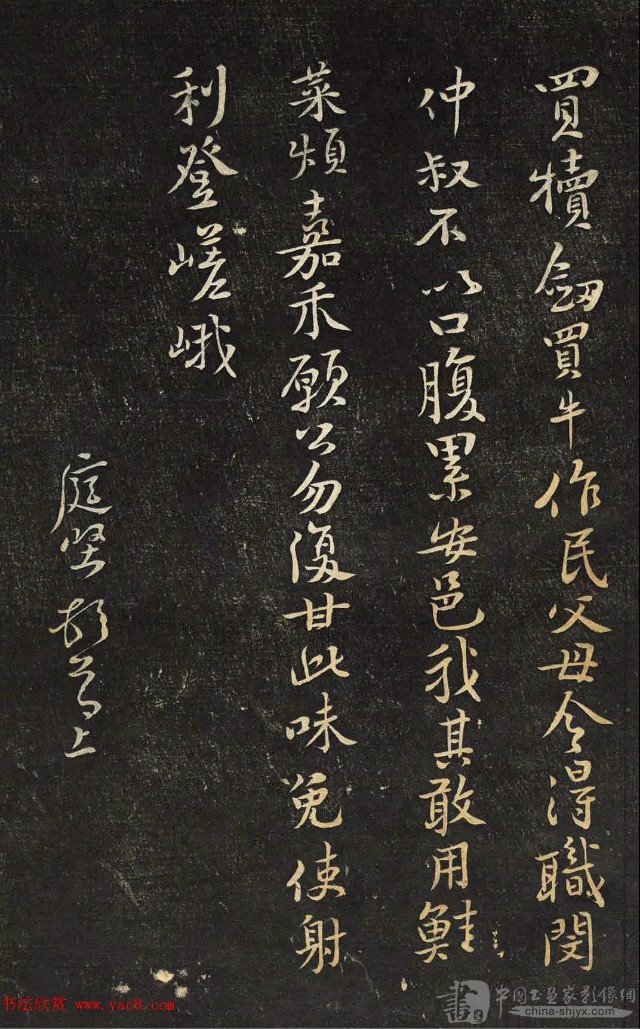 買犢劔買牛作民父母今得職閔
仲叔不以口腹累安邑我其敢用鮭
菜煩嘉禾願公勿復甘此味免使射
利登嵯峨
庭堅頓首上
书法欣赏 www.yac8.com
書 中國书画家影像網
china-shjyx.com